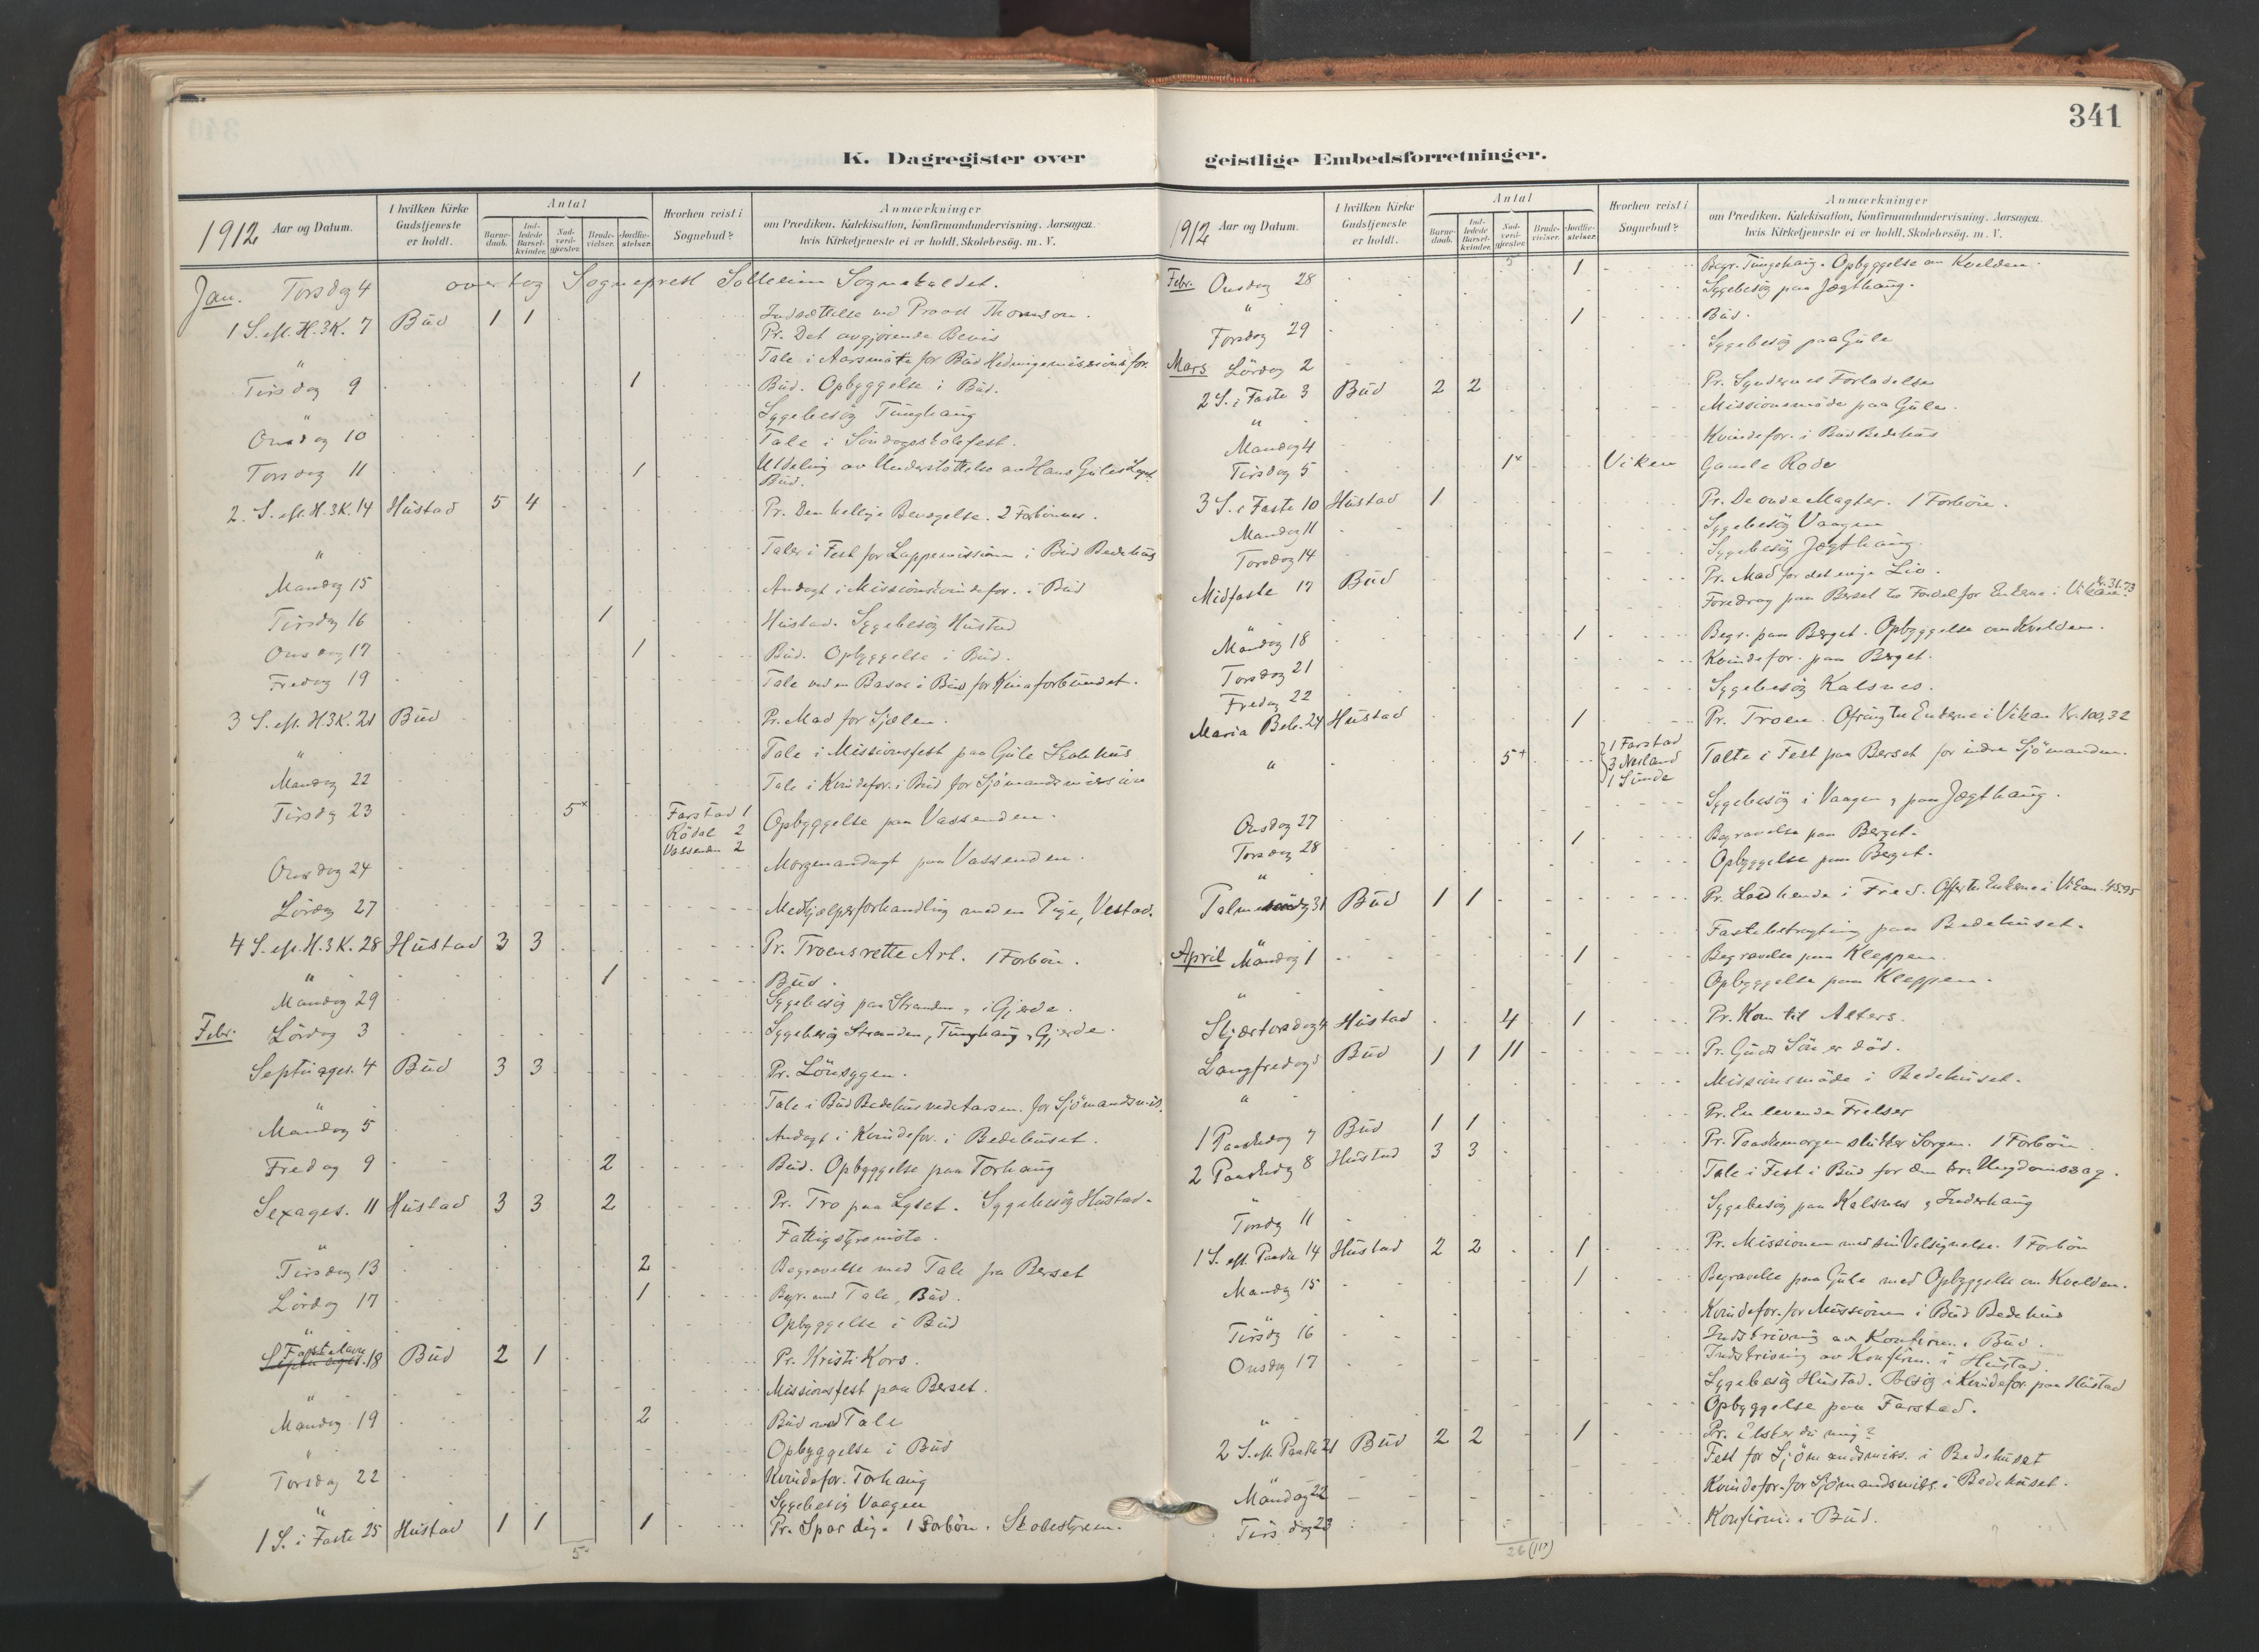 341
K. Dagregister over
1912 Aar og Datum. I hvilken Kirke Gudstjeneste er holdt. Antal Barnedaab. Indledede Barselkvinder. Nadverdgjester. Brudevielser. Jordfæstelser. Hvorhen reist i Sognebud? Anmærkninger om Prædiken, Katekisation, Konfirmandundervisning, Aarsagen, hvis Kirketjeneste ei er holdt, Skolebesög. m. V.
Jan. Torsdag 4 overtog Sogneprest Solleim Sognekaldet.
1 S. eft. H.3K. 7 Bud 1 1 Indsættelse ved Provst Thomson.
Pr. Det avgjørende Bevis
" Tale i Aarsmöte for Bud Hedningemissionsfor.
Tirsdag 9 1 Bud. Opbyggelse i Bud.
" Sygebesög Tunghaug
Onsdag 10 Tale i Söndagsskolefest.
Torsdag 11 1 Utdeling av Understöttelse av Hans Gules Legat.
Bud.
2. S. eft. H.3K. 14 Hustad 5 4 Pr. Den hellige Bevægelse. 2 Forbönner.
" Taler i Fest for Lappemissionen i Bud Bedehus
Mandag 15 Andagt i Missionskvindefor. i Bud
Tirsdag 16 1 Hustad. Sygebesög Hustad
Onsdag 17 1 Bud. Opbyggelse i Bud.
Fredag 19 Tale ved en Basar i Bud for Kinaforbundet.
3 S. eft. H3K. 21 Bud Pr. Mad for Sjælen.
" Tale i Missionsfest paa Gule Skolehus
Mandag 22 Tale i Kvindefor. i Bud for Sjömandsmission
Tirsdag 23 5x Farstad 1 Opbyggelse paa Vassenden.
Rödal 2
Vassenden 2
Onsdag 24 Morgenandagt paa Vassenden.
Lördag 27 Medhjælperforhandling med en Pige, Vestad.
4 S. eft. H.3K. 28 Hustad 3 3 Pr. Troens rette Art. 1 Forbön.
" 1 Bud.
Mandag 29 Sygebesög paa Stranden, i Gjerde.
Febr. Lördag 3 Sygebesög Stranden, Tunghaug, Gjerde.
Septuages. 4 Bud 3 3 Pr. Lönsygen.
" Tale i Bud Bedehus ved Aarsm. for Sjömandsmis.
Mandag 5 Andagt i Kvindefor. i Bedehuset.
Fredag 9 2 Bud. Opbyggelse paa Torhaug
Sexages. 11 Hustad 3 3 2 Pr. Tro paa Lyset. Sygebesög Hustad.
" Fattigstyremöte.
Tirsdag 13 2 Begravelse med Tale fra Berset
Lördag 17 1 Begr. med Tale, Bud.
" Opbyggelse i Bud
Fastelavn 18 Bud 2 1 Pr. Kristi Kors.
" Missionsfest paa Berset.
Mandag 19 2 Bud med Tale
" Opbyggelse i Bud
Torsdag 22 Kvindefor. Torhaug
" Sygebesög Vaagen
1 S. i Faste 25 Hustad 1 1 1 Pr. Spar dig. 1 Forbön. Skolestyrem.
5x
geistlige Embedsforretninger.
1912 Aar og Datum. I hvilken Kirke Gudstjeneste er holdt. Antal Barnedaab. Indledede Barselkvinder. Nadverdgjester. Brudevielser. Jordfæstelser. Hvorhen reist i Sognebud? Anmærkninger om Prædiken, Katekisation, Konfirmandundervisning, Aarsagen, hvis Kirketjeneste ei er holdt, Skolebesög. m. V.
5
Febr. Onsdag 28 1 Begr. Tungehaug. Opbyggelse om Kvelden.
" Sygebesög paa Jægthaug.
Torsdag 29 1 Bud.
Mars Lördag 2 Sygebesög paa Gule
2 S. i Faste 3 Bud 2 2 Pr. Syndernes Forladelse
" Missionsmöde paa Gule.
Mandag 4 Kvindefor. i Bud Bedehus
Tirsdag 5 1x Viken Gamle Rode
3 S. i Faste 10 Hustad 1 Pr. De onde Magter. 1 Forbön.
Mandag 11 Sygebesög Vaagen
Torsdag 14 Sygebesög Jægthaug.
Midfaste 17 Bud Pr. Mad for det evige Liv.
" Foredrag paa Berset til Fordel for Enkerne i Vikan. Kr. 31.73
Mandag 18 1 Begr. paa Berget. Opbyggelse om Kvelden.
Torsdag 21 Kvindefor. paa Berget.
Fredag 22 Sygebesög Kalsnes.
Maria Beb. 24 Hustad 1 Pr. Troen. Ofring til Enkerne i Vikan Kr. 100,32
" 5+ 1 Farstad
3 Neiland
1 Sunde
Talte i Fest paa Berset for indre Sjömandsm.
Onsdag 27 Sygebesög i Vaagen, paa Jægthaug.
Torsdag 28 1 Begravelse paa Berget.
" Opbyggelse paa Berget.
Palmesöndag 31 Bud 1 1 Pr. Lad hende i Fred. Offer til Enkerne i Vikan. 45.95
Fastebetragtning paa Bedehuset.
April Mandag 1 1 Begravelse paa Kleppen.
" Opbyggelse paa Kleppen.
Skjærtorsdag 4 Hustad 4 1 Pr. Kom til Alters.
Langfredag 5 Bud 1 1 11 Pr. Guds Sön er död.
" Missionsmöde i Bedehuset.
1 Paaskedag 7 Bud 1 1 Pr. En levende Frelser
2 Paaskedag 8 Hustad 3 3 Pr. Paaskemorgen slukker Sorgen. 1 Forbön
" Tale i Fest i Bud for den kr. Ungdomssag.
Torsdag 11 Sygebesög paa Kalsnes, Inderhaug
1 S. eft. Paaske 14 Hustad 2 2 1 Pr. Missionen med sin Velsignelse. 1 Forbön
Mandag 15 1 Begravelse paa Gule med Opbyggelse om Kvelden.
" Kvindefor. for Missionen i Bud Bedehus
Tirsdag 16 Indskrivning av Konfirm. i Bud.
Onsdag 17 Indskrivning av Konfirm. i Hustad.
Sygebesög Hustad. Besög i Kvindefor. paa Hustad
" Opbyggelse paa Farstad.
2 S. eft. Paaske 21 Bud 2 2 1 Pr. Elsker du mig?
Fest for Sjömandsmiss. i Bedehuset
Mandag 22 Kvindefor. for Sjömandsmiss. i Bedehuset.
Tirsdag 23 Konfirm. i Bud.
26 (11x)